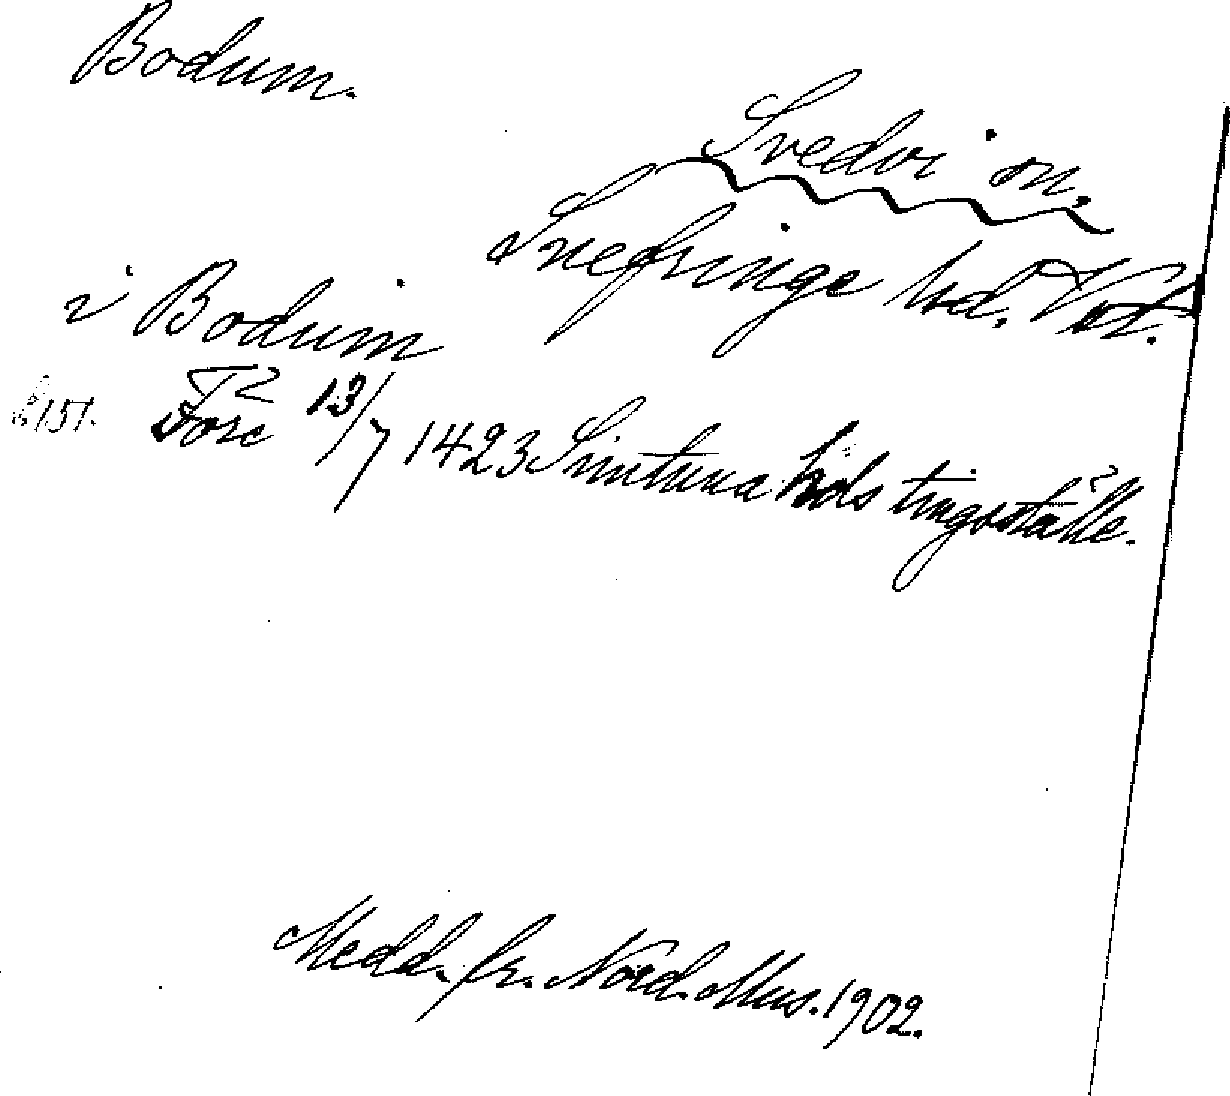 Bodum.
Svedvi sn.
Snefringe hd. Vstm.
i Bodum
s. 151. Torc 13/7 1423 Simtuna hds tingställe.
Medd. fr. Nord. Mus. 1902.